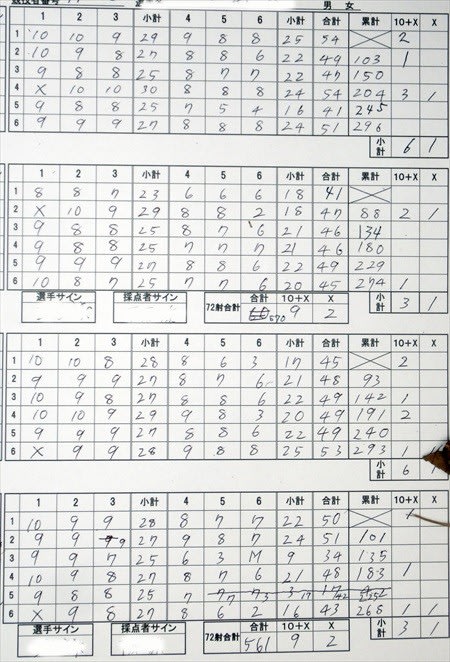 男 女
1 2 3 小計 4 5 6 小計 合計 累計 10+X X
1 10 10 9 29 9 8 8 25 54 2
2 10 9 8 27 8 8 6 22 49 103 1
3 9 8 8 25 8 7 7 22 47 150
4 X 10 10 30 8 8 8 24 54 204 3 1
5 9 8 8 25 7 5 4 16 41 245
6 9 9 9 27 8 8 8 24 51 296
小計 6 1
1 2 3 小計 4 5 6 小計 合計 累計 10+X X
1 8 8 7 23 6 6 6 18 41
2 X 10 9 29 8 8 2 18 47 88 2 1
3 9 8 8 25 8 7 6 21 46 134
4 9 8 8 25 7 7 7 21 46 180
5 9 9 9 27 8 8 6 22 49 229
6 10 8 7 25 7 7 6 20 45 274 1
小計 3 1
選手サイン 採点者サイン 72射合計 合計 10+X X
570 9 2
1 2 3 小計 4 5 6 小計 合計 累計 10+X X
1 10 10 8 28 8 6 3 17 45 2
2 9 9 9 27 8 7 6 21 48 93
3 10 9 8 27 8 8 6 22 49 142 1
4 10 10 9 29 9 8 3 20 49 191 2
5 9 9 9 27 8 8 6 22 49 240
6 X 9 9 28 9 8 8 25 53 293 1
小計 6 1
1 2 3 小計 4 5 6 小計 合計 累計 10+X X
1 10 9 9 28 8 7 7 22 50 1
2 9 9 9 27 9 8 7 24 51 101
3 9 9 7 25 6 3 M 9 34 135
4 10 9 8 27 8 7 6 21 48 183 1
5 9 8 8 25 7 7 3 17 42
6 X 9 8 27 8 6 2 16 43 268 1 1
小計 3 1
選手サイン 採点者サイン 72射合計 合計 10+X X
561 9 2